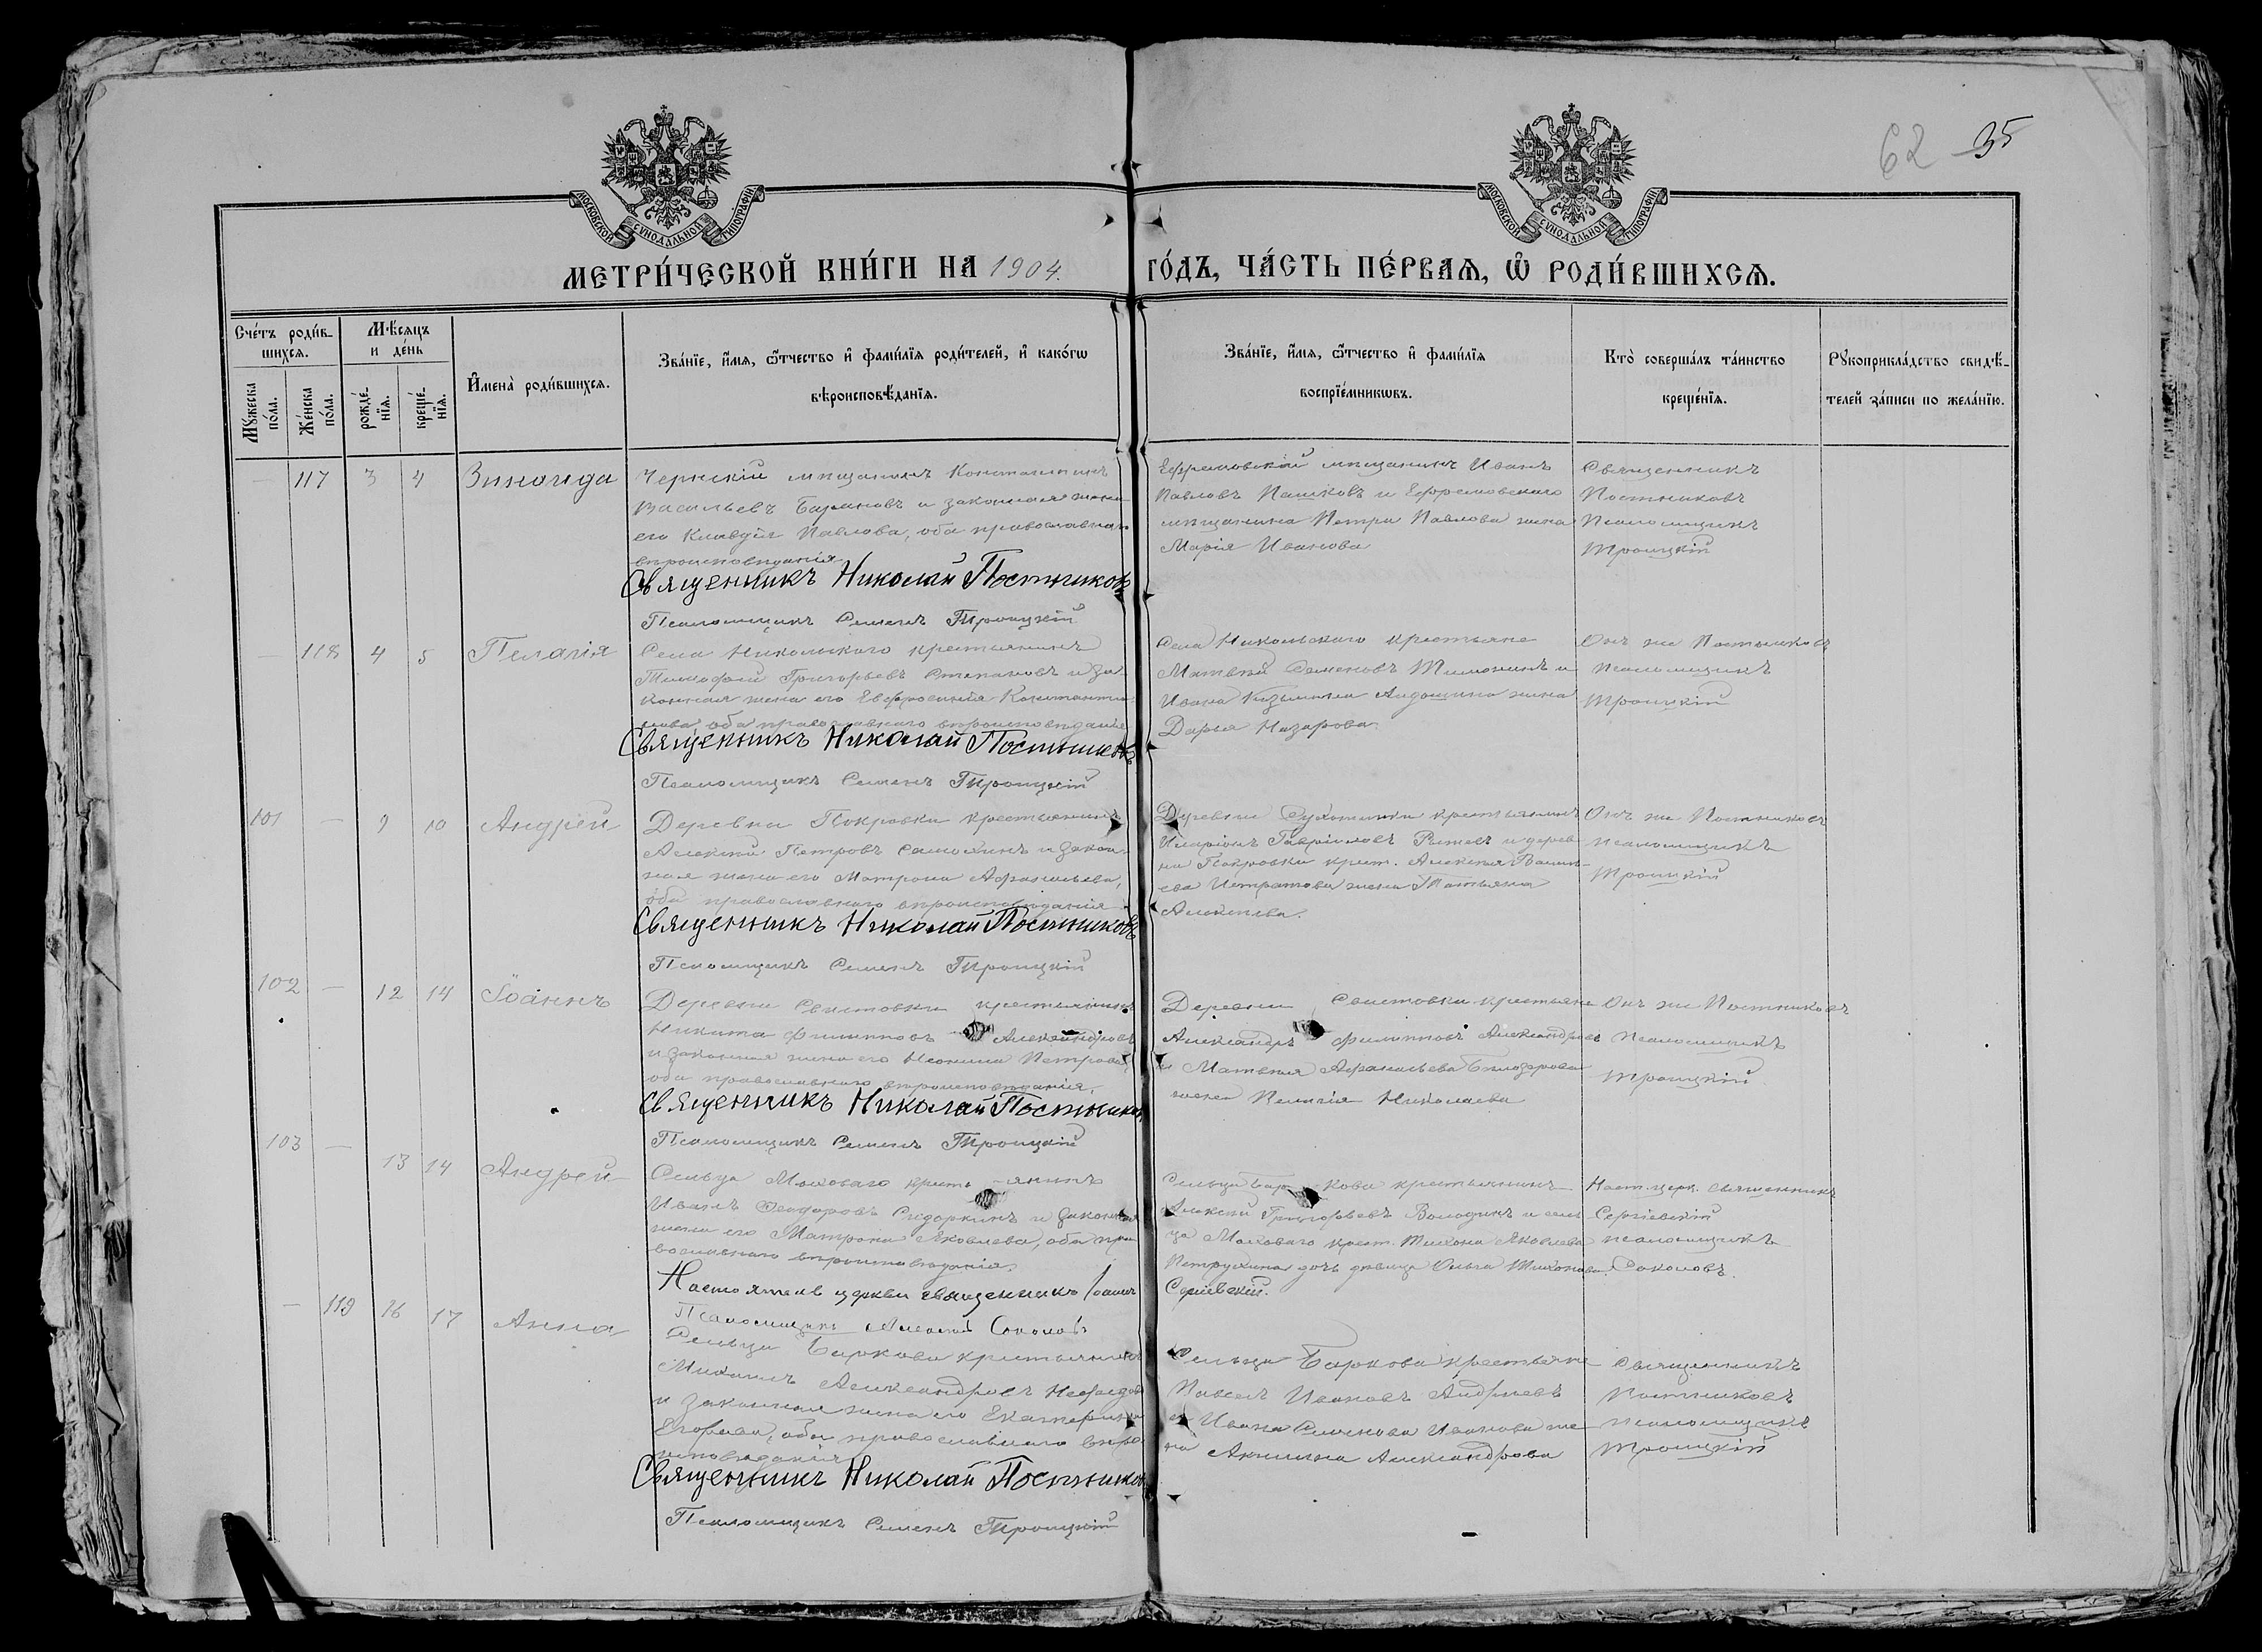 62 35
МОСКОВСКОЙ СѴНОДАЛЬНОЙ ТИПОГРАФІИ
МОСКОВСКОЙ СѴНОДАЛЬНОЙ ТИПОГРАФІИ
МЕТРИ́ЧЕСКОЙ КНИ́ГИ НА 1904. ГО́ДЪ, ЧА́СТЬ ПЕ́РВАѦ, Ѡ҆ РОДИ́ВШИХСѦ.
Сче́тъ роди́в-
шихсѧ.
Мꙋ́жеска по́ла.
Же́нска по́ла.
Мѣ́сѧцъ
и де́нь
рожде́-нїѧ.
креще́-нїѧ.
И҆мена̀ роди́вшихсѧ.
Зва́нїе, и҆́мѧ, ѻ҆́тчество и҆ фами́лїѧ роди́телей, и҆ како́гѡ
вѣроисповѣ́данїѧ.
Зва́нїе, и҆́мѧ, ѻ҆́тчество и҆ фами́лїѧ
воспрїе́мникѡвъ.
Кто̀ соверша́лъ та́инство
креще́нїѧ.
Рꙋкоприкла́дство свидѣ́-
телей за́писи по жела́нїю.
— 117 3 4 Зинаида
Чернскій мѣщанинъ Константинъ
Васильевъ Барановъ и законная жена
его Клавдія Павлова, оба православнаго
вѣроисповѣданія
Священникъ Николай Постников
Псаломщикъ Семенъ Троицкій
Ефремовскій мѣщанинъ Иванъ
Павловъ Пашковъ и Ефремовскаго
мѣщанина Петра Павлова жена
Марія Иванова
Священникъ
Постниковъ
Псаломщикъ
Троицкій
— 118 4 5 Пелагія
Села Никольскаго крестьянинъ
Тимофей Григорьевъ Степановъ и за-
конная жена его Евфросинія Константи-
нова оба православнаго вѣроисповѣданія
Священникъ Николай Постников
Псаломщикъ Семенъ Троицкій
Села Никольскаго крестьяне
Матвѣй Семеновъ Тимонинъ и
Ивана Кузьмина жена
Дарья Назарова.
Онъ же Постниковъ
псаломщикъ
Троицкій
101 — 9 10 Андрей
Деревни Покровки крестьянинъ
Алексѣй Петровъ Самохинъ и закон-
ная жена его Матрона Афанасьева,
оба православнаго вѣроисповѣданія
Священникъ Николай Постниковъ
Псаломщикъ Семенъ Троицкій
Деревни крестьянинъ
Иларіонъ Гавриловъ и дерев-
ни Покровки крест. Алексѣя Василь-
ева жена Татьяна
Алексѣева.
Онъ же Постниковъ
псаломщикъ
Троицкій
102 — 12 14 Іоаннъ
Деревни Свистовки крестьянинъ
Никита Филипповъ Александровъ
и законная жена его Неонила Петрова,
оба православнаго вѣроисповѣданія.
Священникъ Николай Постников
Псаломщикъ Семенъ Троицкій
Деревни Свистовки крестьяне
Александръ Филипповъ Александровъ
и Матвѣя Афанасьева Бѣлозерова
жена Пелагія Николаева
Онъ же Постниковъ
Псаломщикъ
Троицкій
103 — 13 14 Андрей
Сельца Моховаго кресть-янинъ
Иванъ Ѳеодоровъ Сидоркинъ и законная
жена его Матрона Яковлева, оба пра-
вославнаго вѣроисповѣданія.
Настоятель церкви священникъ Іоаннъ Сергіевскій.
Псаломщикъ Алексѣй Соколовъ
Сельца Баркова крестьянинъ
Алексѣй Григорьевъ Володинъ и сель-
ца Моховаго крест. Тихона Яковлева
Петрухина дочь дѣвица Ольга Тихонова.
Наст. церк. священникъ
Сергіевскій
псаломщикъ
Соколовъ.
— 119 16 17 Анна
Сельца Баркова крестьянинъ
Михаилъ Александровъ
и законная жена его Екатерина
Егорова, оба православнаго вѣро-
исповѣданія
Священникъ Николай Постников
Псаломщикъ Семенъ Троицкій
Сельца Баркова крестьяне
Павелъ Ивановъ Андреевъ
и Ивана Семенова Иванова же-
на Акилина Александрова
Священникъ
Постниковъ
псаломщикъ
Троицкій